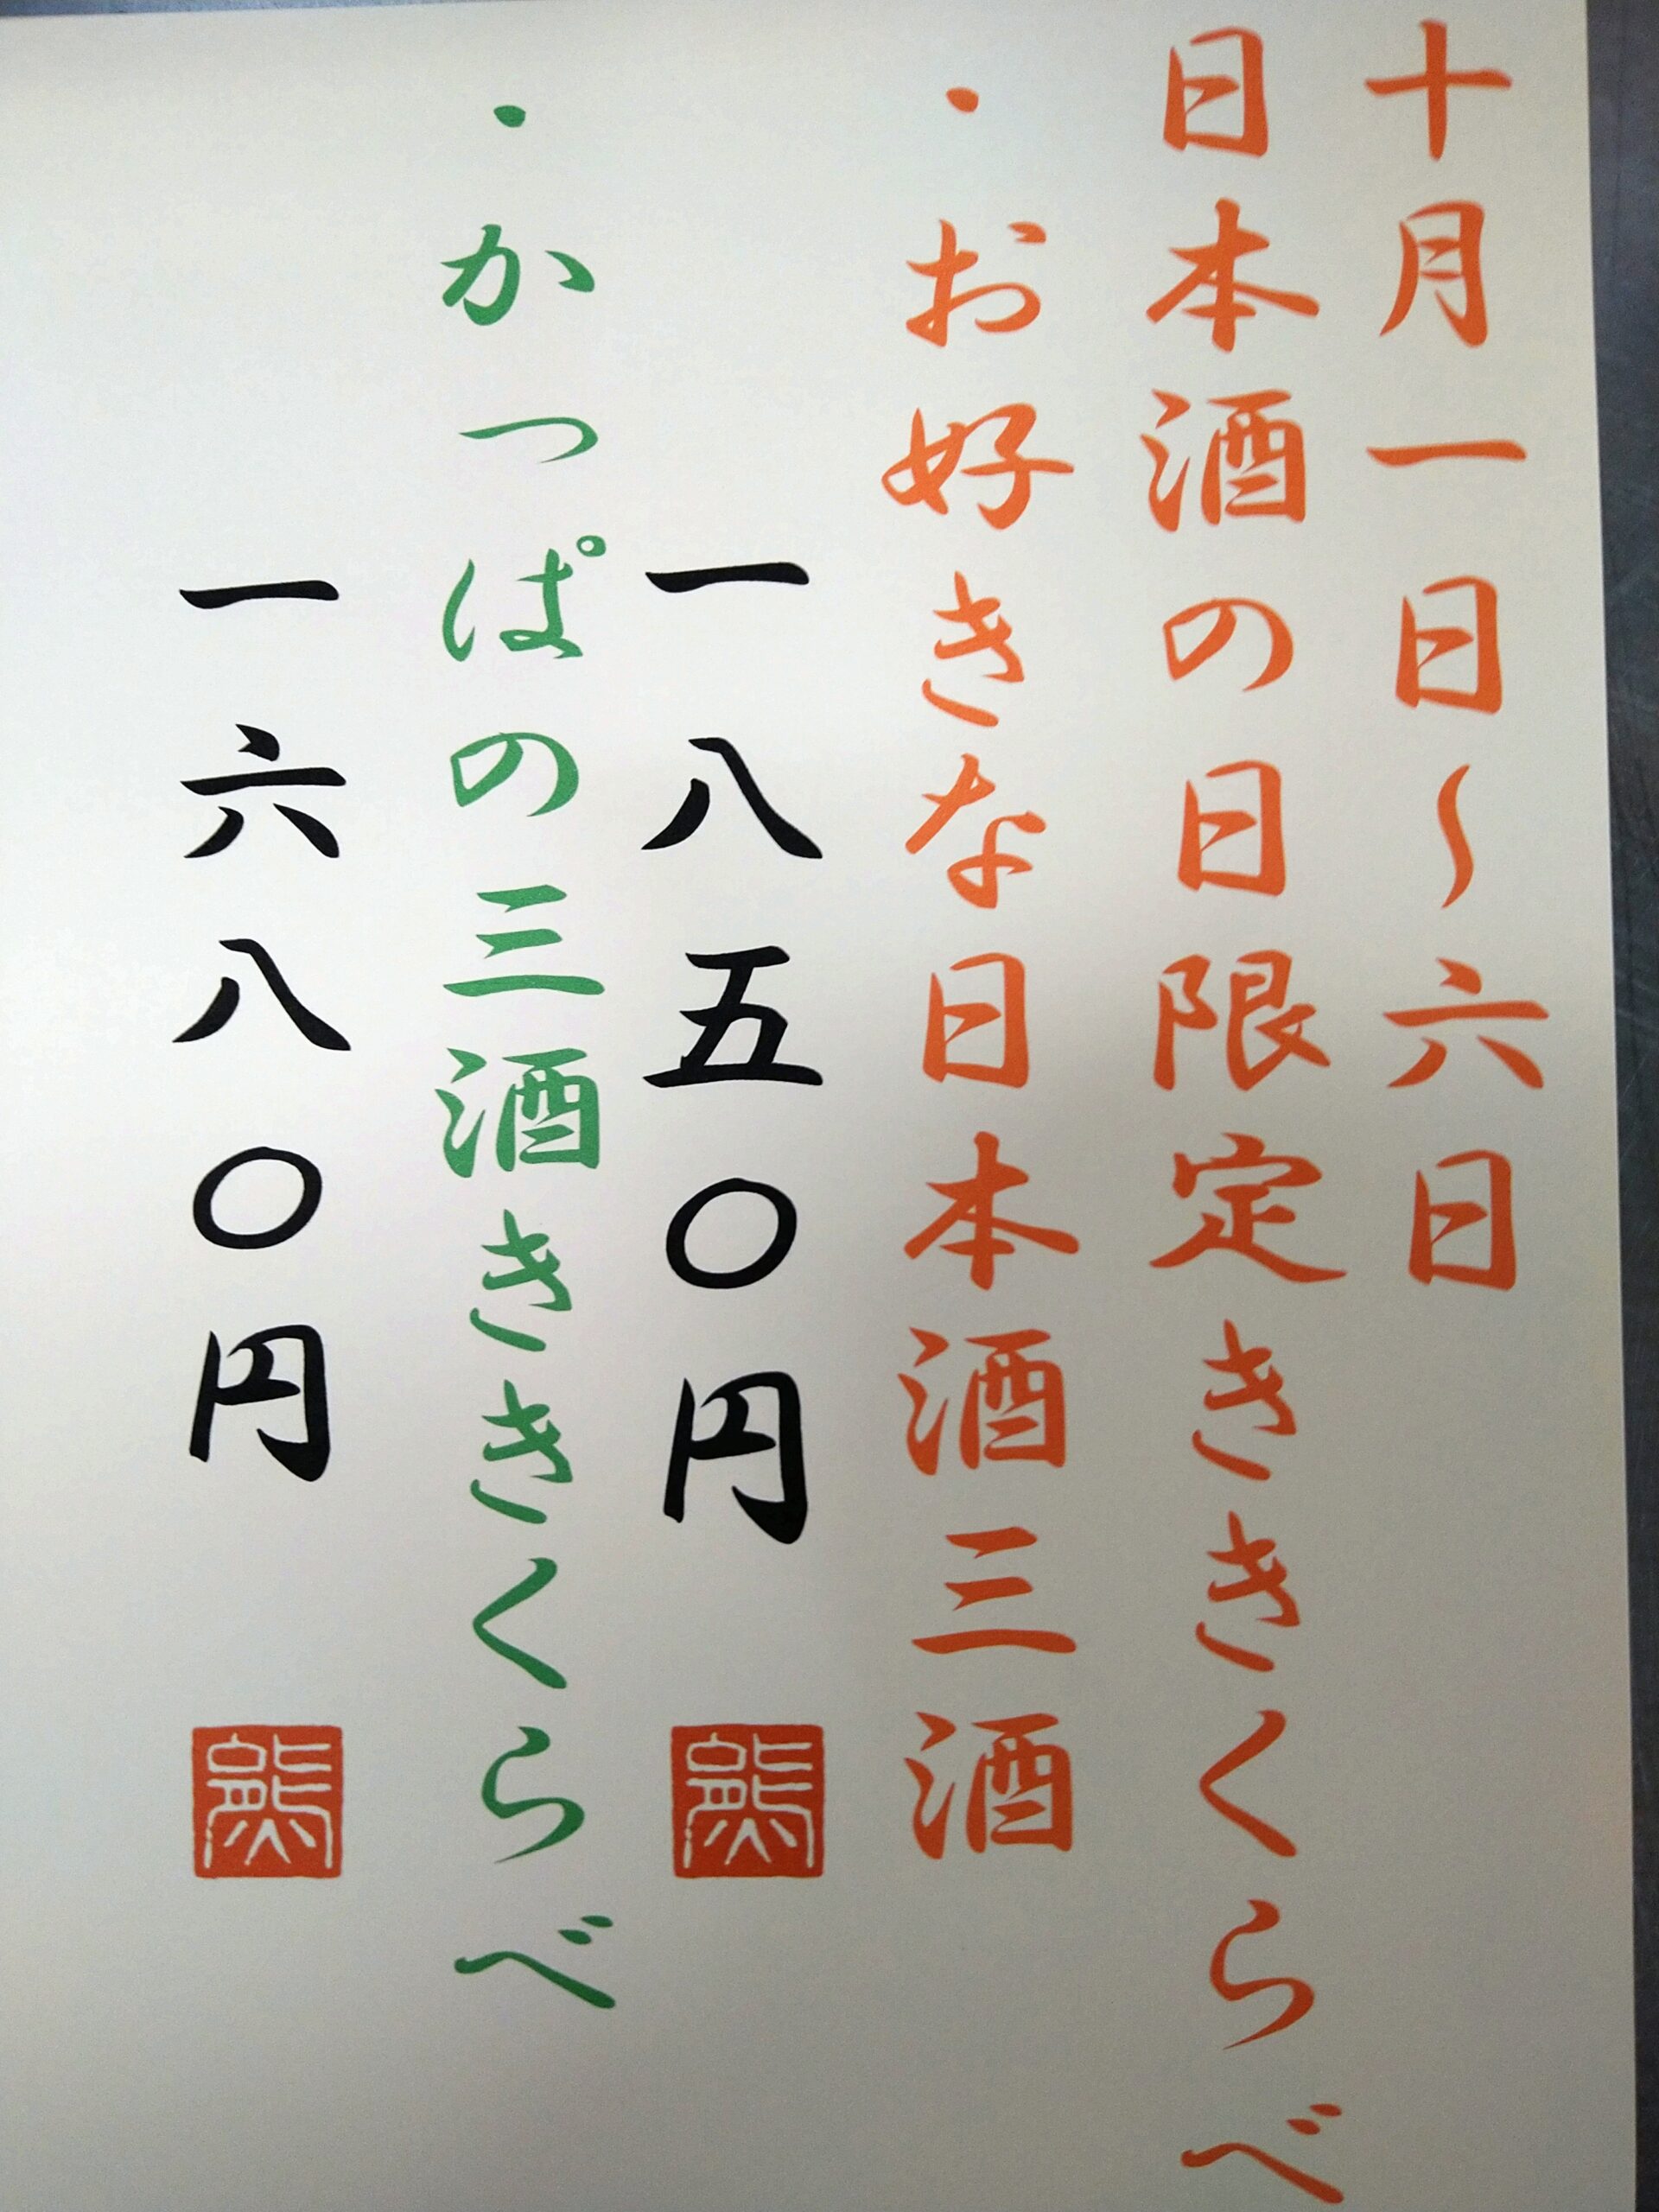 十月一日~六日
日本酒の日限定ききくらべ
・お好きな日本酒三酒
一八五〇円
・かっぱの三酒ききくらべ
一六八〇円